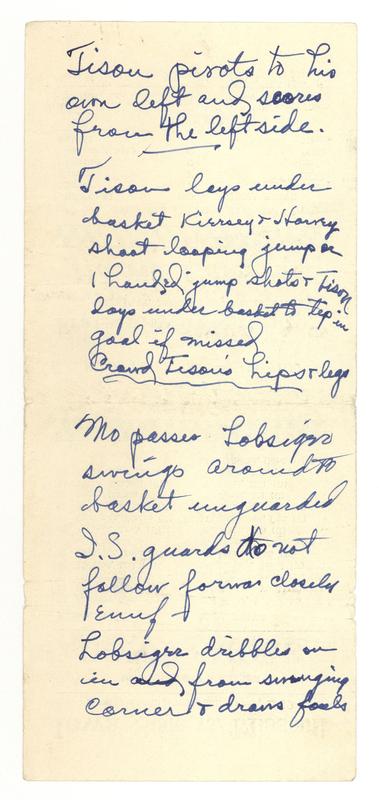 Tison pivots to his
own left and scores
from the left side.
Tison lays under
basket Kiersey & Harvey
shoot looping jump or
1 handed jump shots & Tison
lays under basket to tip in
goal if missed
Crowd Tison's hips & legs
Mo passes Lobsiger
swings around to
basket unguarded
I.S. guards do not
follow forwar closely
enuf
Lobsiger dribbles on
in and from swinging
corner & draws fouls